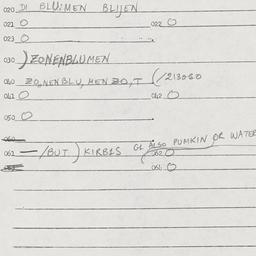 020 DI BLUIMEN BLIJEN
021 O 022 O
023 O
030 ) ZONENBLUMEN
040 ZO,NENBLU,MEN ZO,T (/213060
041 O 042 O
050 O
060
061 — /BUT ) KIRBES GL ALSO PUMKIN OR WATER
062 O
064 O